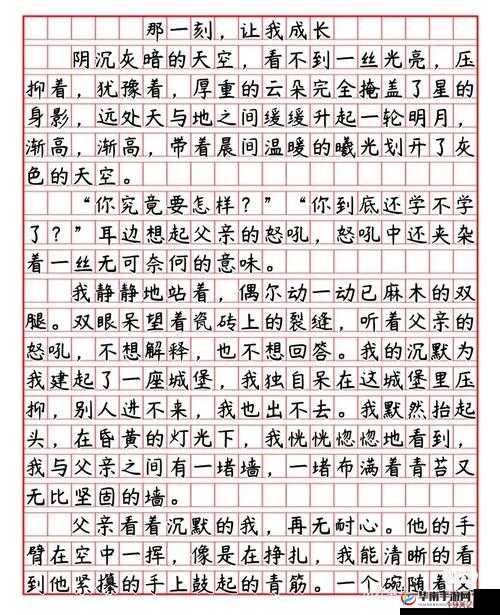 那一刻，让我成长
阴沉灰暗的天空，看不到一丝光亮，压
抑着，犹豫着，厚重的云朵完全掩盖了星的
身影，远处天与地之间缓缓升起一轮明月，
渐高，渐高，带着晨间温暖的曦光划开了灰
色的天空。
“你究竟要怎样？”“你到底还学不学
了？”耳边想起父亲的怒吼，怒吼中还夹杂
着一丝无可奈何的意味。
我静静地站着，偶尔动一动已麻木的双
腿。双眼呆望着瓷砖上的裂缝，听着父亲的
怒吼，不想解释，也不想回答。我的沉默为
我建起了一座城堡，我独自呆在这城堡里压
抑，别人进不来，我也出不去。我默然抬起
头，在昏黄的灯光下，我恍恍惚惚地看到，
我与父亲之间有一堵墙，一堵布满着青苔又
无比坚固的墙。
父亲看着沉默的我，再无耐心。他的手
臂在空中一挥，像是在挣扎，我能清晰的看
到他紧攥的手上鼓起的青筋。一个碗随着父
华南手游网